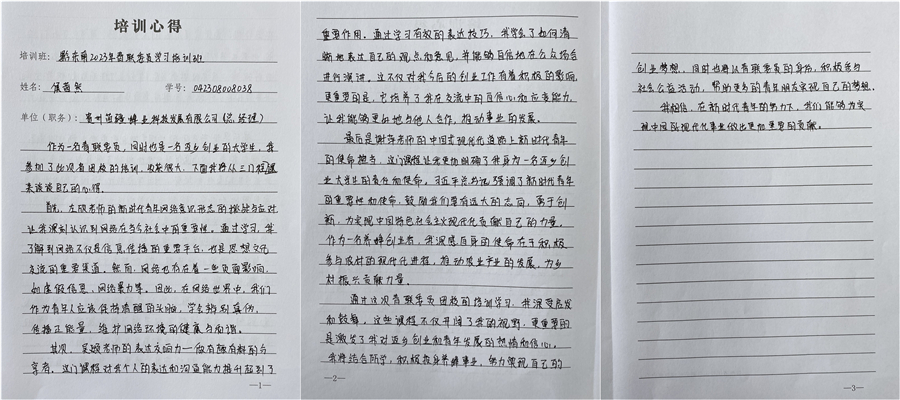 培训心得
培训班：黔东南2023年青联委员学习培训班
姓名： 学号：042308008038
单位（职务）：贵州苗疆蜂业科技发展有限公司（总经理）
作为一名青联委员，同时也是一名返乡创业的大学生，我
参加了此次青团校的培训，收获很大，下面我将从三门课程
来谈谈自己的心得。
首先，左欣老师的新时代青年网络意识形态的挑战与应对
让我深刻认识到网络在当今社会中的重要性。通过学习，我
了解到网络不仅是信息传播的重要平台，也是思想文化
交流的重要渠道。然而，网络也存在着一些负面影响，
如虚假信息、网络暴力等。因此，在网络世界中，我们
作为青年人应该保持清醒的头脑，学会辨别真伪，
传播正能量，维护网络环境的健康与和谐。
其次，吴颖老师的表达交响力——做有趣有料的与
享者。这门课程对我个人的表达和沟通能力提升起到了
—1—
重要作用。通过学习有效的表达技巧，我学会了如何清
晰地表达自己的观点和意见，并能够自信地在公众场合
进行演讲。这不仅对我今后的创业工作有着积极的影响，
更重要的是，它培养了我在交流中的自信心和应变能力，
让我能够更好地与他人合作，推动事业的发展。
最后是谢萍老师的中国式现代化道路上新时代青年
的使命担当，这门课程让我更加明确了我身为一名返乡创
业大学生的责任和使命。习近平总书记强调了新时代青年
的重要性和使命，鼓励我们要有远大的志向，勇于创
新，为实现中国特色社会主义现代化贡献自己的力量。
作为一名养蜂创业者，我深感自身的使命在于积极
参与农村的现代化进程，推动农业产业的发展，为乡
村振兴贡献力量。
通过这次青联委员团校的培训学习，我深受启发
和鼓舞，这些课程不仅开阔了我的视野，更重要的
是激发了我对返乡创业和青年发展的热情和信心。
我将结合所学，积极投身养蜂事业，努力实现自己的
—2—
创业梦想，同时也将以青联委员的身份，积极参与
社会公益活动，帮助更多的青年朋友实现自己的梦想。
我相信，在新时代青年的努力下，我们能够为实
现中国式现代化事业做出更加重要的贡献。
—3—